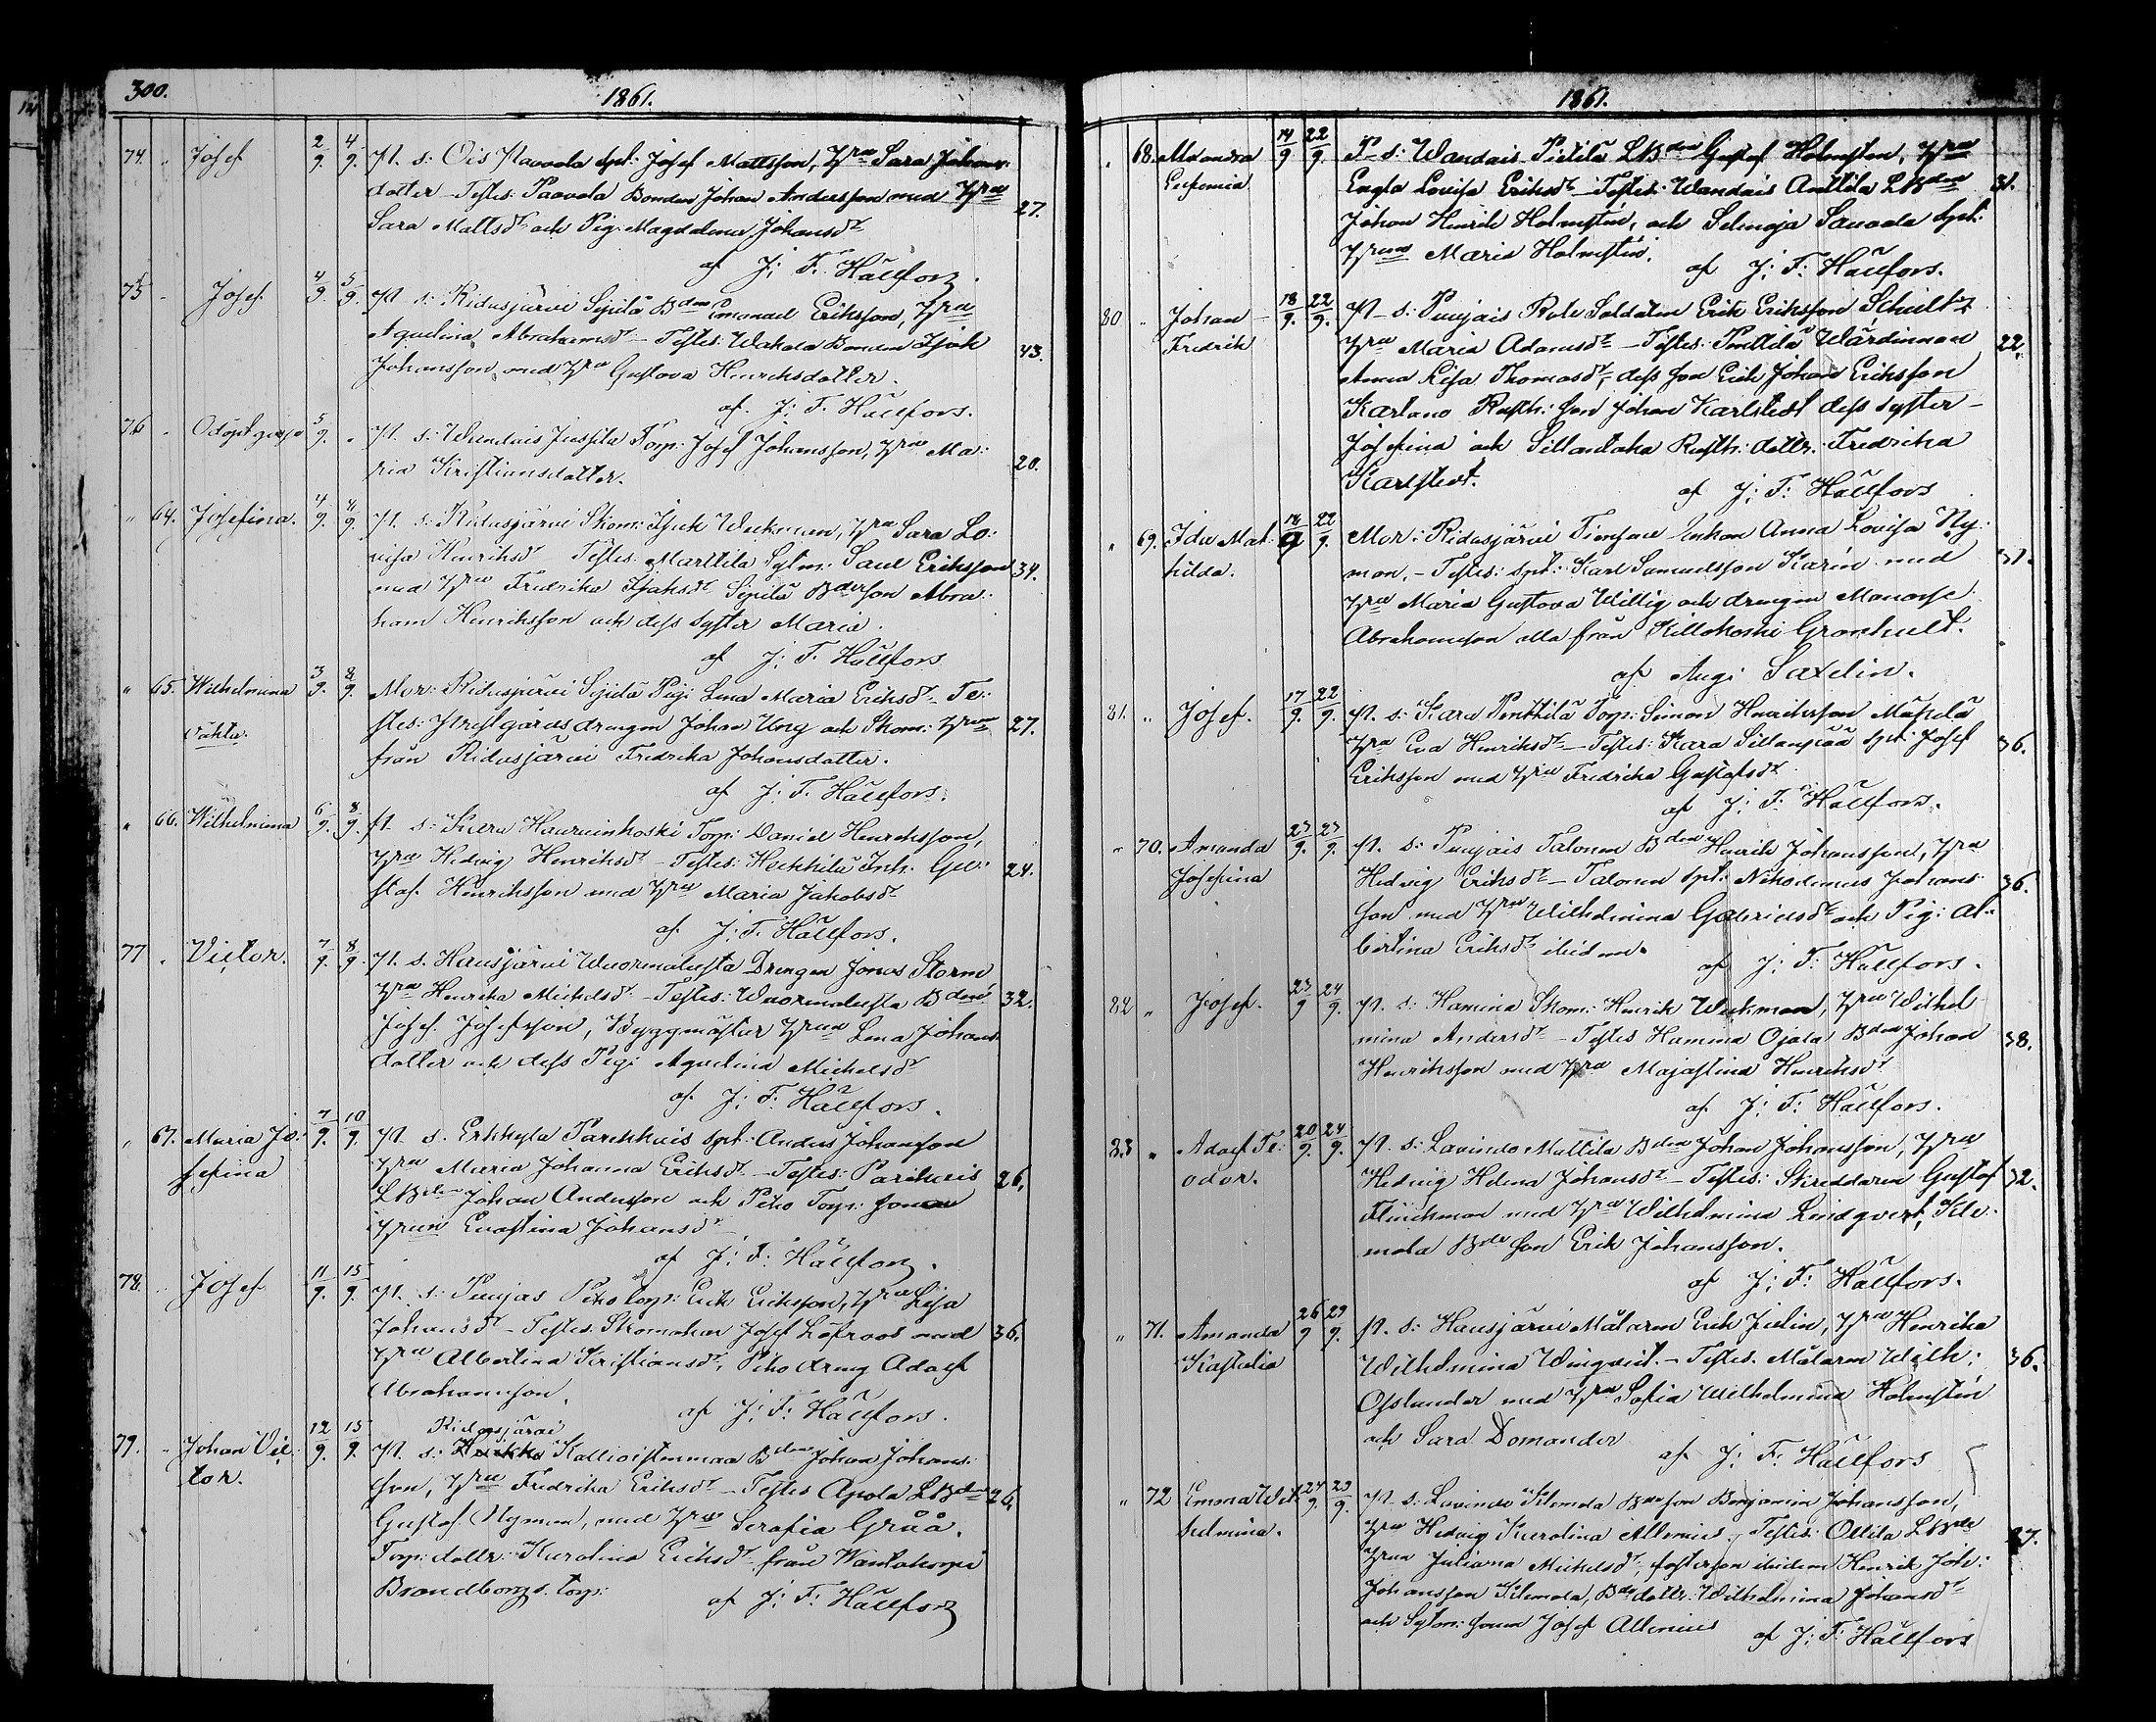 300.
1861.
74. " Josef 2/9. 4/9. P. s: Ois Paavola Spl: Josef Mattsson, Hru Sara Johans-
dotter - Testes: Paavola Bonden Johan Andersson med Hru 27.
Sara Mattsdr och Pig: Magdalena Johansdr
af J: F: Hällfors.
75 " Josef. 4/9. 5/9. P. s: Ridasjärvi Sipilä Bden Emanuel Eriksson, Hru
Aqvilina Abrahamsdr - Testes: Wakola Bonden Isak 43.
Johansson med Hru Gustava Henriksdotter.
af. J: F. Hällfors.
76 " Odöpt gosse 5/9. " P. s: Jussila Torp: Josef Johansson, Hru Ma:
ria Kristiansdotter. 20.
" 64. Josefina. 4/9. P. s: Ridasjärvi Skom: Isak Weckman, Hru Sara Lo:
visa Henriksdr Testes: Marttila Sytn: Saul Eriksson 34.
med Hru Fredrika Isaksdr Sipilä Bdeson Abra:
ham Henriksson och dess syster Maria.
af J: F. Hällfors
" 65. Wilhelmina 3/9. 8/9. Mor: Ridasjärvi Sipilä Pig: Lena Maria Eriksdr - Te:
oäkta. stes: drengen Johan Ung och Skom: Hrun 27.
från Ridasjärvi Fredrika Johansdotter.
af J: F. Hällfors.
" 66. Wilhelmina 6/9. 8/9. P. s: Kara Torp: Daniel Henriksson,
Hru Hedvig Henriksdr - Testes: Heikkilä Inh: Gu: 24.
staf Henriksson med Hru Maria Jakobsdr
af. J: F. Hällfors.
77 " Victor. 7/9. 8/9. P. s. Hausjärvi Drengen Jonas Storm
Hru Henrika Michelsdr - Testes: Bden 32.
Josef Josefsson, Byggmästar Hrun Lena Johans
dotter och dess Pig: Aqvilina Michelsdr
af. J: F. Hällfors.
" 67. Maria Jo: 7/9. 10/9. P. s. Erkkylä Parikkais Spl: Anders Johansson
sefina Hru Maria Johanna Eriksdr - Testes: 26.
LBden Johan Andersson och Piko Torp:
Hrun Evastina Johansdr
af J: F. Hällfors.
78. " Josef 11/9. 15/9. P. s: Puujas Piko torp: Erik Eriksson, Hru Lisa
Johansdr - Testes: Skomakar Josef Löfroos med 36.
Hru Albertina Kristiansdr, Piko dreng Adolf
Abrahamsson.
af J: F. Hällfors.
Ridasjärvi
79. " Johan Vic: 12/9. 15/9. P. s: Kallioistenmaa Bden Johan Johans:
tor. son, Hru Fredrika Eriksdr - Testes Apola LBden 26.
Gustaf Nyman, med Hru Serafia Gråå.
Torp: dottr: Karolina Eriksdr från
Brandborgs torp:
af J: F: Hällfors
1861.
" 68. Alexandra 14/9 22/9. P. s: Wandais Pietilä LBden Gustaf Holmsten, Hru
Eufemia Engla Lovisa Eriksdr - Testes: Wandais Anttila LBden 31.
Johan Henrik Holmstén, och Selinoja Sauvala Spl:
Hrun Maria Holmstén.
af J: F: Hällfors.
80 " Johan 18/9. 22/9. P. s: Puujais Rote Soldaten Erik Eriksson Schultz
Fredrik Hru Maria Adamsdr - Testes: Penttilä Wärdinnan 22.
Anna Lisa Thomasdr, dess son Erik Johan Eriksson
Kartano Rusth: son Johan Karlstedt dess syster -
Josefina och Sillantaka Rusth: dottr. Fredrika
Karlstedt.
af J: F: Hällfors
" 69. Ida Mat: 18/9 22/9. Mor: Ridasjärvi Enkan Anna Lovisa Ny:
hilda. man, - Testes: Spl: Karl Samuelsson Karin med 31.
Hru Maria Gustava Willig och drengen Manasse
Abrahamsson alla från Killokoski
af Aug: Saxelin.
81. " Josef. 17/9. 22/9. P. s: Kara Penttilä Torp: Simon Henriksson Mäkelä
Hru Eva Henriksdr - Testes: Kara Sillanpää Spl: Josef 36.
Eriksson med Hru Fredrika Gustafsdr
af J: F: Hällfors.
" 70. Amanda 23/9. 23/9. P. s: Puujais Talonen Bden Henrik Johansson, Hru
Josefina Hedvig Eriksdr - Talonen Spl: Nikodemus Johans 36.
son med Hru Wilhelmina Gabrielsdr och Pig: Al-
bertina Eriksdr ibidem.
af J: F: Hällfors.
82 " Josef. 23/9 24/9. P. s: Hamina Skom: Henrik Weckman, Hru Wilhel
mina Andersdr - Testes Hamina Ojala Bden Johan 38.
Henriksson med Hru Majastina Henriksdr
af. J: F: Hällfors.
83 " Adolf Te: 20/9. 24/9. P. s: Lavinto Mattila Bden Johan Johansson, Hru
odor. Hedvig Helena Johansdr - Testes: Skreddaren Gustaf 32.
Flinckman med Hru Wilhelmina Lindqvist, Kile:
mola Bde son Erik Johansson.
af J: F: Hällfors.
" 71. Amanda 26/9 29/9. P. s: Hausjärvi Målaren Erik Julin, Hru Henrika
Wilhelmina Winqvist. - Testes. Målaren Wilh: 36.
Oslander med Hru Sofia Wilhelmina Holmstén
och Sara Domander
af. J: F: Hällfors
" 72 Emma Wil 24/9 29/9. P. s: Lavinto Kilemola Bde son Benjamin Johansson,
helmina. Hru Hedvig Karolina Allenius - Testes: Ollila LBde 27.
Hrun Juliana Michelsdr, fosterson ibidem Henrik Joh:
Johansson Kilemola, Bde dottr: Wilhelmina Johansdr
och Sytn: sonen Josef Allenius
af J: F: Hällfors